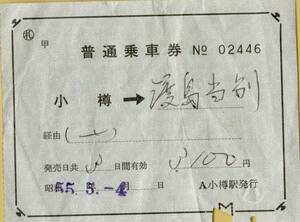 札
甲
普通乗車券 No 02446
小樽 → 渡島当別
経由 ( )
発売日共 日間有効 100円
昭和55.5.-4 日 A小樽駅発行